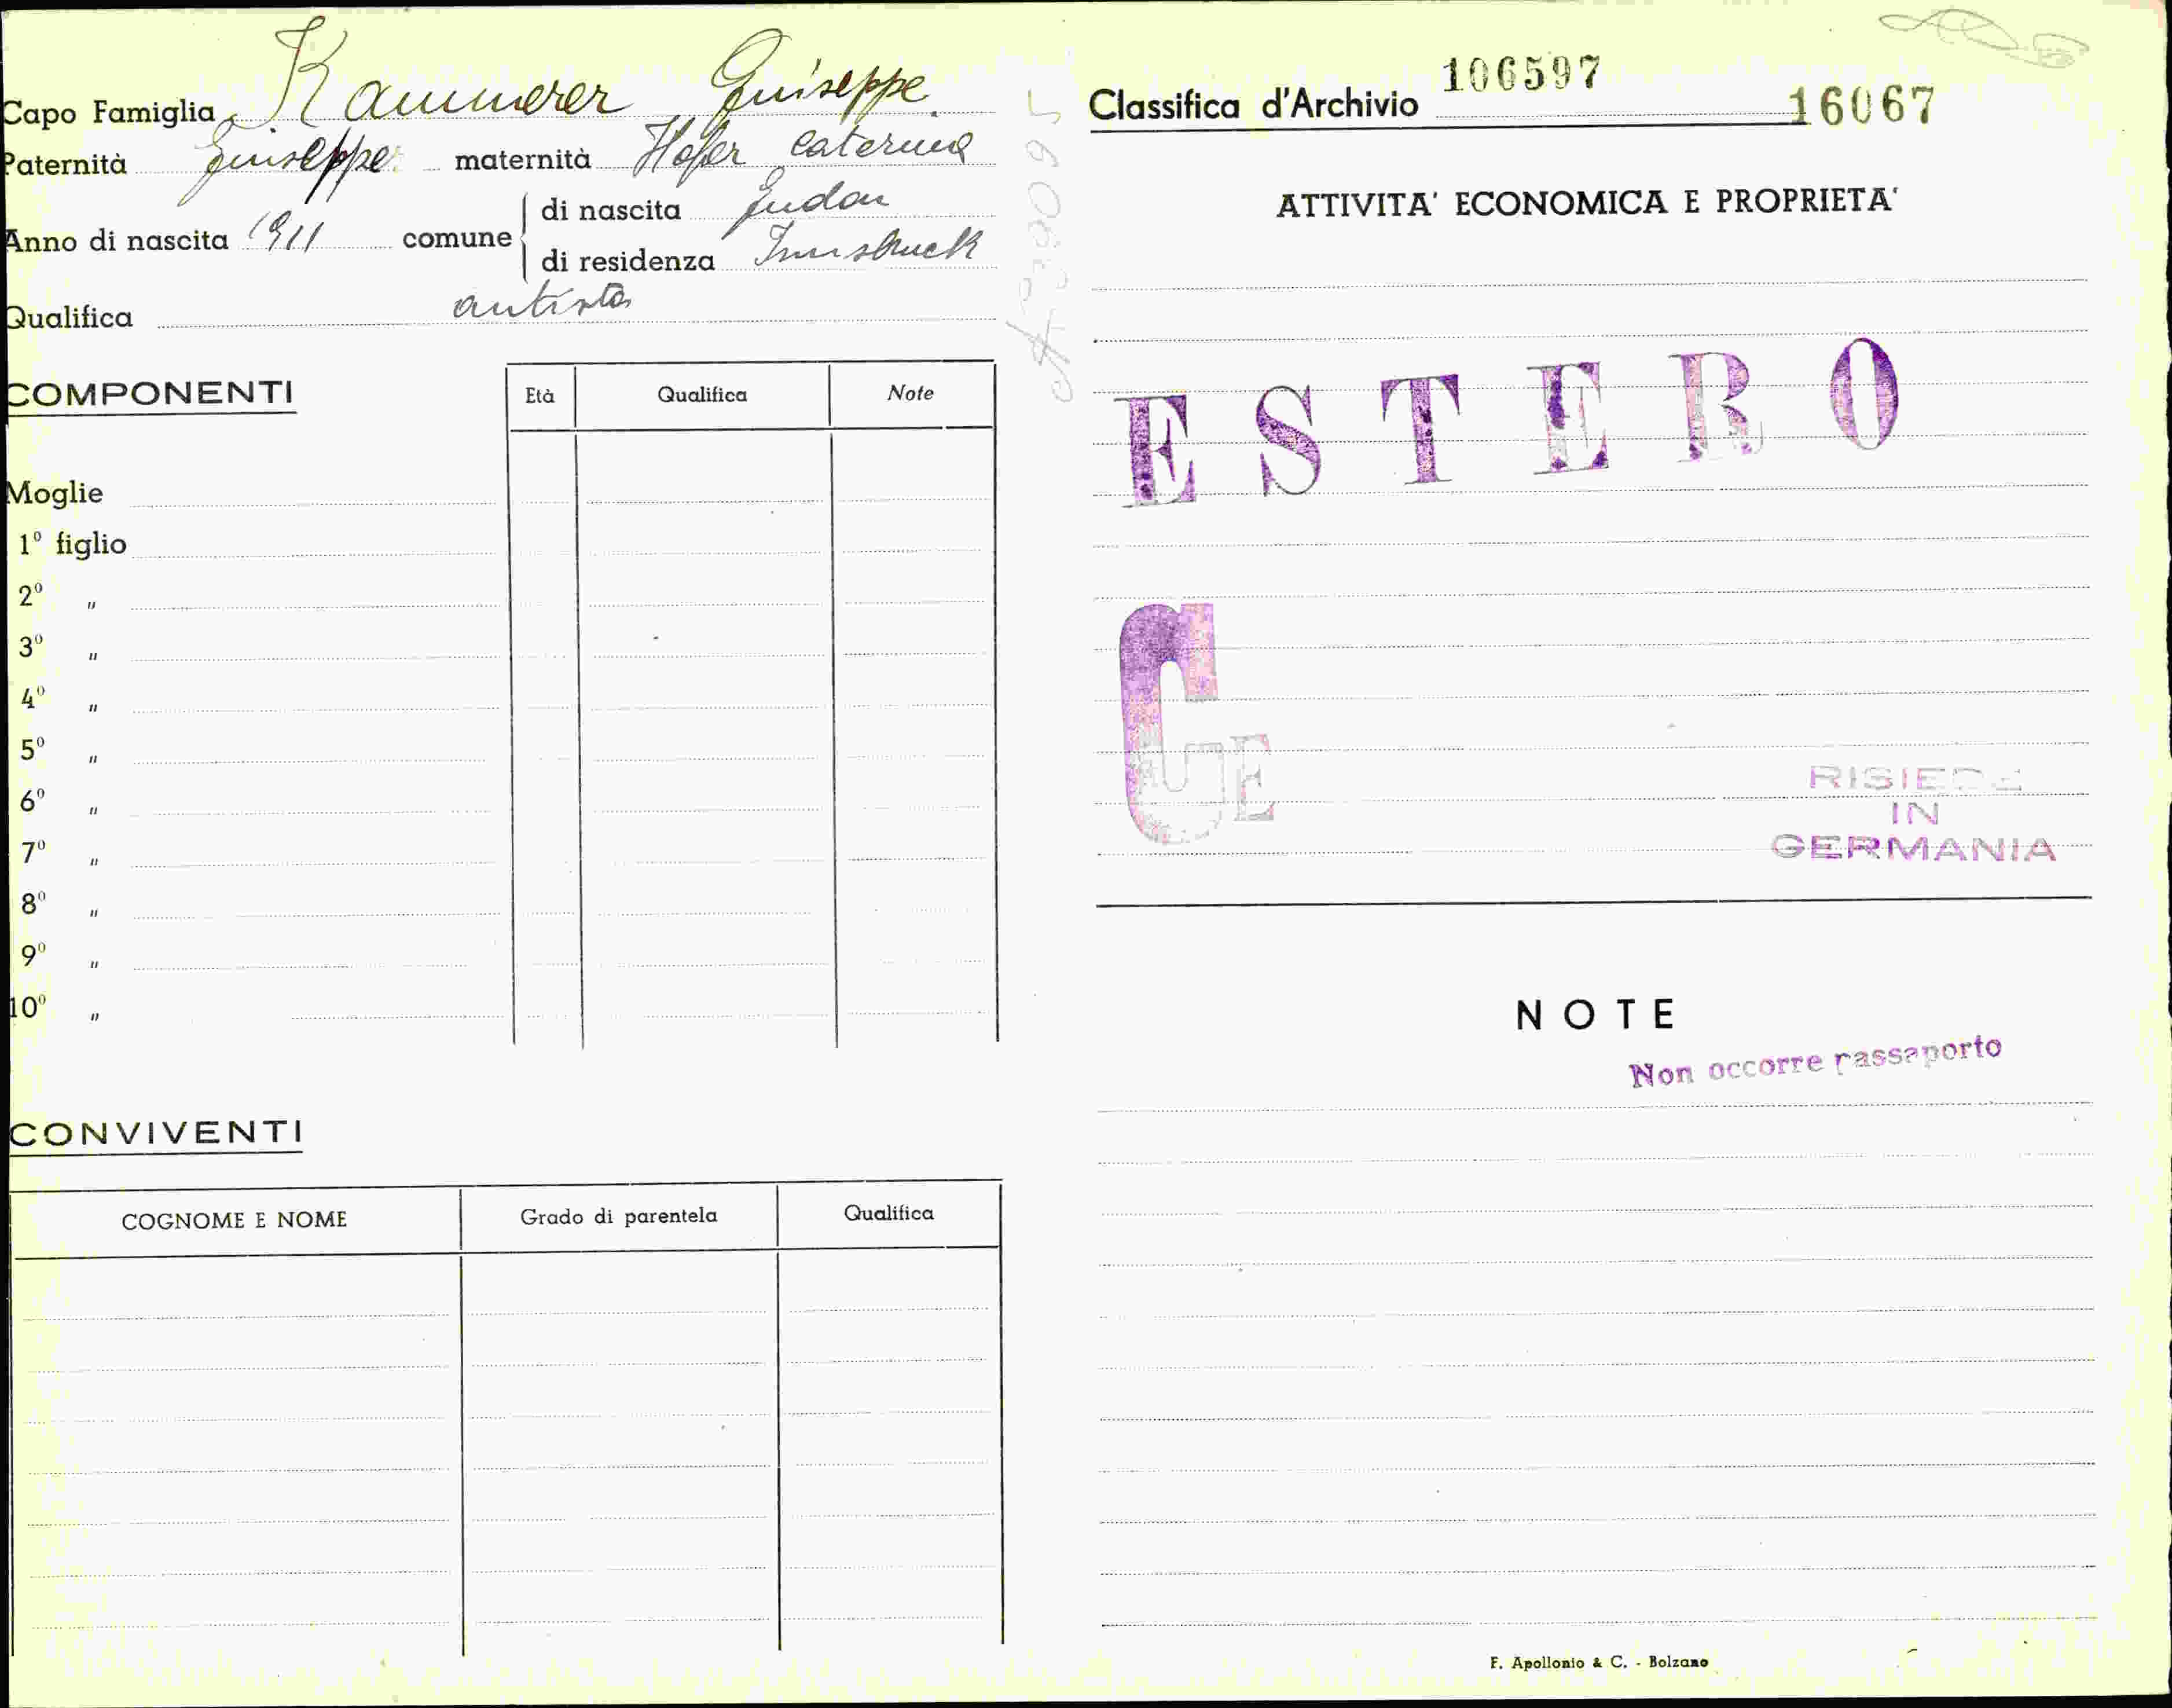 Capo Famiglia Kammerer Giuseppe
Paternità Giuseppe maternità Hofer Caterina
Anno di nascita 1911 comune di nascita
di residenza Innsbruck
Qualifica autista
COMPONENTI
Età Qualifica Note
Moglie
1º figlio
2º "
3º "
4º "
5º "
6º "
7º "
8º "
9º "
10º "
CONVIVENTI
COGNOME E NOME Grado di parentela Qualifica
Classifica d'Archivio 106597 16067
ATTIVITA' ECONOMICA E PROPRIETA'
ESTERO
RISIEDE
IN
GERMANIA
NOTE
Non occorre passaporto
F. Apollonio & C. - Bolzano